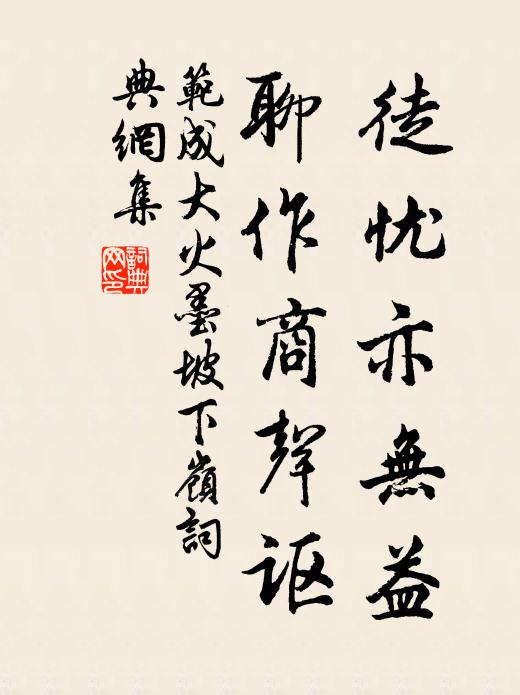 徒忧亦無益
聊作商聲讴
範成大火墨坡下嶺詞
典網集
詞典網印